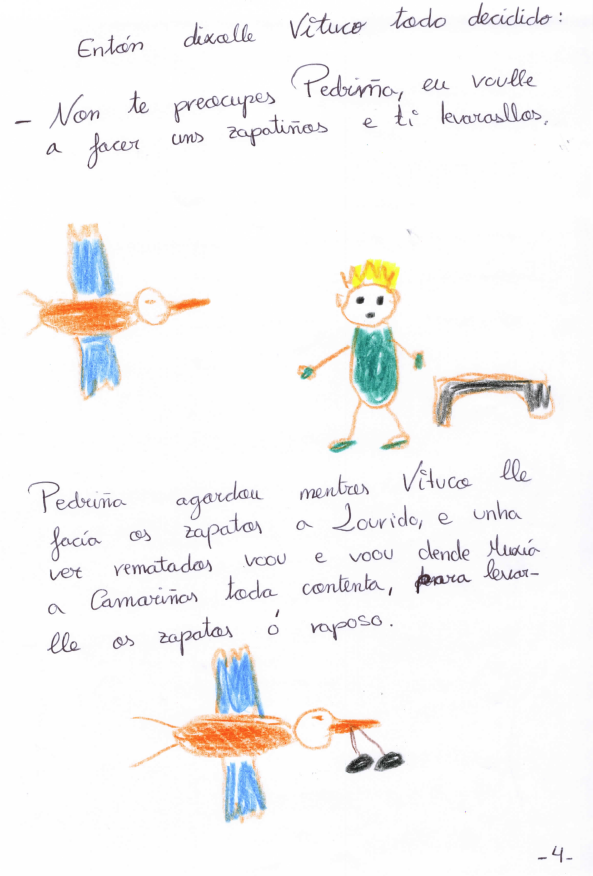 Entón dixolle Vituco todo decidido:
- Non te preocupes Pedriña, eu voulle
a facer uns zapatiños e ti levarasllos.
Pedriña agardou mentres Vituco lle
facía os zapatos a Lourido, e unha
ver rematados voou e voou dende Muxía
a Camariñas toda contenta, para levar-
lle os zapatos ó raposo.
-4-